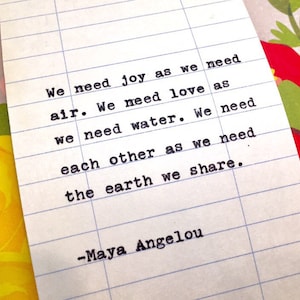 We need joy as we need
air. We need love as
we need water. We need
each other as we need
the earth we share.
-Maya Angelou